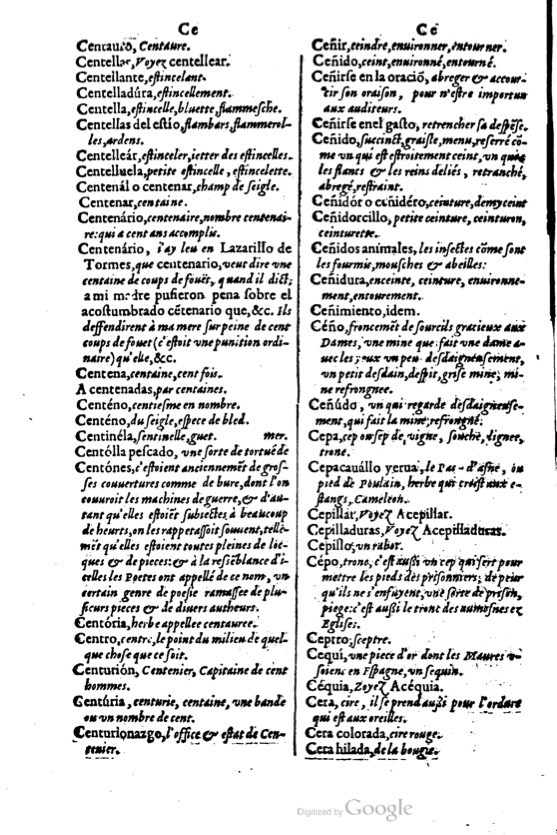 Ce
Centauro, Centaure.
Centellar, Voyez centellear.
Centellante, estincelant.
Centelladúra, estincellement.
Centella, estincelle, bluette, flammesche.
Centellas del estio, flambars, flammerol-
les, ardens.
Centelleár, estinceler, ietter des estincelles.
Centelluela, petite estincelle, estincelette.
Centenál o centenar, champ de seigle.
Centenar, centaine.
Centenário, centenaire, nombre centenai-
re: qui a cent ans accomplis.
Centenário, i'ay leu en Lazarillo de
Tormes, que centenario, veut dire vne
centaine de coups de fouët, quand il dict;
a mi madre pusieron pena sobre el
acostumbrado cẽtenario que, &c. Ils
deffendirent à ma mere sur peine de cent
coups de fouet (c'estoit vne punition ordi-
naire) qu'elle, &c.
Centena, centaine, cent fois.
A centenadas, par centaines.
Centéno, centiesme en nombre.
Centéno, du seigle, espece de bled.
Centinéla, sentinelle, guet. mer.
Centólla pescado, vne sorte de tortuë de
Centónes, c'estoient anciennemẽt de gros-
ses couuertures comme de bure, dont l'on
couuroit les machines de guerre, & d'au-
tant qu'elles estoiẽt subiectes à beaucoup
de heurts, on les rappetassoit souuent, tellé-
mẽt qu'elles estoient toutes pleines de loc-
ques & de pieces: & à la resẽblance d'i-
celles les Poetes ont appellé de ce nom, vn
certain genre de poesie ramassee de plu-
sieurs pieces & de diuers autheurs.
Centória, herbe appellee centauree.
Centro, centre, le point du milieu de quel-
que chose que ce soit.
Centurión, Centenier, Capitaine de cent
hommes.
Centúria, centurie, centaine, vne bande
ou vn nombre de cent.
Centurionazgo, l'office & estat de Cen-
tenier.
Ce
Ceñir, ceindre, enuironner, entourner.
Ceñido, ceint, enuironné, entourné.
Ceñirse en la oració, abreger & accour-
cir son oraison, pour n'estre importun
aux auditeurs.
Ceñirse enel gasto, retrencher sa despẽse.
Ceñido, succinct, graisle, menu, reserré cõ-
me vn qui est estroitement ceint, vn qui a
les flancs & les reins deliés, retranché,
abregé, restraint.
Ceñidór o ceñidéro, ceinture, demyceint
Ceñidorcillo, petite ceinture, ceinturon,
ceinturette.
Ceñidos animales, les insectes cõme sont
les fourmis, mousches & abeilles:
Ceñidura, enceinte, ceinture, enuironne-
ment, entourement.
Ceñimiento, idem.
Céño, froncemẽt de sourcils gracieux aux
Dames, vne mine que fait vne dame a-
uec les yeux vn peu desdaigneusement,
vn petit desdain, despit, grise mine, mi-
ne refrongnee.
Ceñúdo, vn qui regarde desdaigneuse-
ment, qui fait la mine, refrongné.
Cepa, cep ou sep de vigne, souche, lignee,
trone.
Cepacauállo yerua, le Pas-d'asne, ou
pied de Poulain, herbe qui croist aux e-
stangs, Cameleon.
Cepillar, Voyez Acepillar.
Cepilladuras, Voyez Acepilladuras.
Cepillo, vn rabot.
Cépo, tronc, c'est aussi vn cep qui sert pour
mettre les pieds des prisonniers, de peur
qu'ils ne s'enfuyent, vne sorte de prison,
piege: c'est aussi le tront des aumosnes ez
Eglises.
Ceptro, sceptre.
Cequí, vne piece d'or dont les Maures v-
soient en Espagne, vn sequin.
Céquia, Voyez Acéquia.
Cera, cire, il se prend aussi pour l'ordure
qui est aux oreilles.
Cera colorada, cire rouge.
Cera hilada, de la bougie.
Digitized by Google